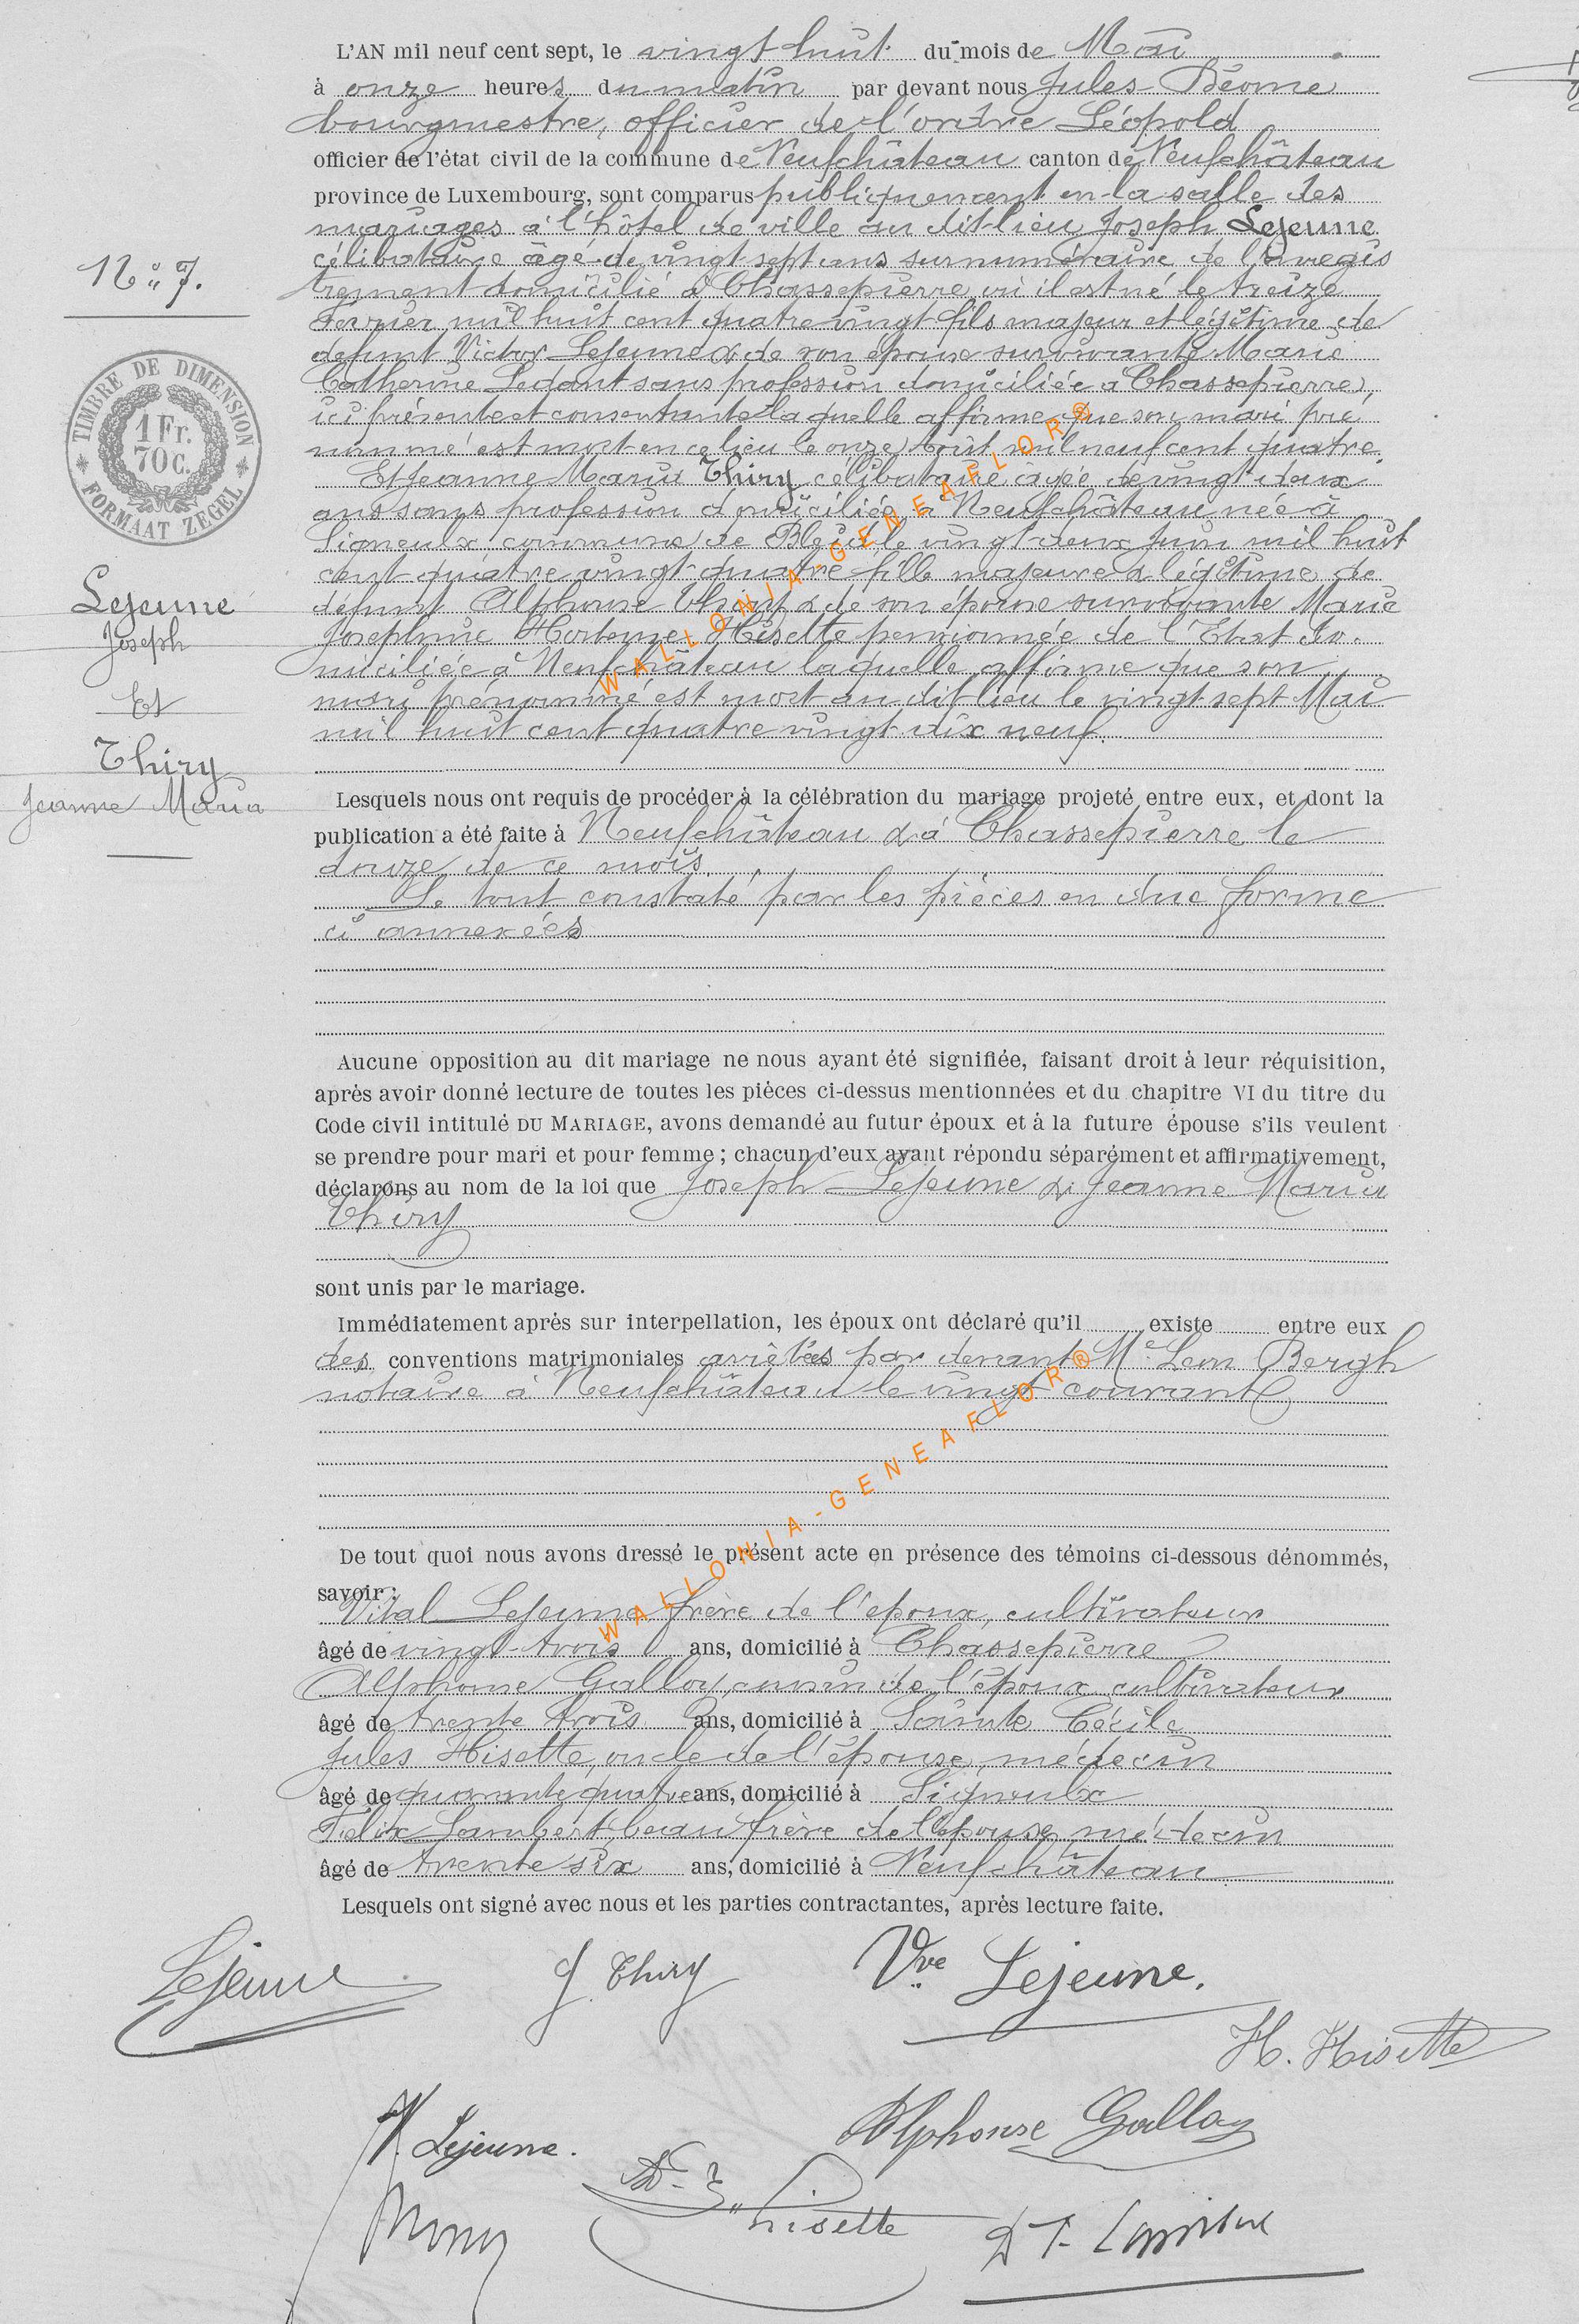 L'AN mil neuf cent sept, le vingt huit du mois de Mai
à onze heures du matin par devant nous Jules Déome
bourgmestre, officier de l'ordre Léopold
officier de l'état civil de la commune de Neufchâteau canton de Neufchâteau
province de Luxembourg, sont comparus publiquement en la salle des
mariages à l'hôtel de ville au dit-lieu Joseph Lejeune
célibataire âgé de vingt sept ans surnuméraire de l'enregis
trement domicilié à Chassepierre où il est né le treize
Février mil huit cent quatre vingt fils majeur et légitime de
défunt Victor Lejeune & de son épouse survivante Marie
Catherine Ledant sans profession domiciliée à Chassepierre,
ici présente et consentante laquelle affirme que son mari pré
nommé est mort en ce lieu le onze Août mil neuf cent quatre.
Et Jeanne Maria Thiry célibataire âgée de vingt deux
ans sans profession domiciliée à Neufchâteau née à
Signeulx commune de Bleid le vingt deux Juin mil huit
cent quatre vingt quatre fille majeure & légitime de
défunt Alphonse Thiry & de son épouse survivante Marie
Joséphine Hortense Hisette pensionnée de l'Etat do-
miciliée à Neufchâteau laquelle affirme que son
mari prénommé est mort au dit lieu le vingt sept Mai
mil huit cent quatre vingt dix neuf.
N° 7.
TIMBRE DE DIMENSION
1 Fr.
70 C.
FORMAAT ZEGEL
Lejeune
Joseph
Et
Thiry
Jeanne Maria
Lesquels nous ont requis de procéder à la célébration du mariage projeté entre eux, et dont la
publication a été faite à Neufchâteau & à Chassepierre le
douze de ce mois.
Le tout constaté par les pièces en due forme
ci annexées
Aucune opposition au dit mariage ne nous ayant été signifiée, faisant droit à leur réquisition,
après avoir donné lecture de toutes les pièces ci-dessus mentionnées et du chapitre VI du titre du
Code civil intitulé DU MARIAGE, avons demandé au futur époux et à la future épouse s'ils veulent
se prendre pour mari et pour femme ; chacun d'eux ayant répondu séparément et affirmativement,
déclarons au nom de la loi que Joseph Lejeune & Jeanne Maria
Thiry
sont unis par le mariage.
Immédiatement après sur interpellation, les époux ont déclaré qu'il existe entre eux
des conventions matrimoniales arrêtées par devant Me Léon Bergh
notaire à Neufchâteau le vingt courant
De tout quoi nous avons dressé le présent acte en présence des témoins ci-dessous dénommés,
savoir :
Vital Lejeune frère de l'époux, cultivateur
âgé de vingt-trois ans, domicilié à Chassepierre
Alphonse Galloy, cousin de l'époux, cultivateur
âgé de trente trois ans, domicilié à Sainte Cécile
Jules Hisette, oncle de l'épouse, médecin
âgé de quarante quatre ans, domicilié à Signeulx
Félix Lambert, beau frère de l'épouse, médecin
âgé de trente six ans, domicilié à Neufchâteau
Lesquels ont signé avec nous et les parties contractantes, après lecture faite.
Lejeune J. Thiry Vve Lejeune.
H. Hisette
V. Lejeune. Alphonse Galloy
Hisette
WALLONIA-GENEAFLOR®
WALLONIA-GENEAFLOR®